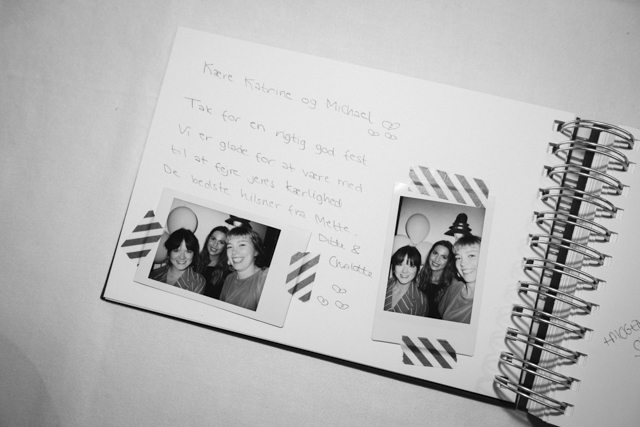 Kære Katrine og Michael
Tak for en rigtig god fest
Vi er glade for at være med
til at fejre jeres kærlighed
De bedste hilsner fra Mette,
Ditte &
Charlotte